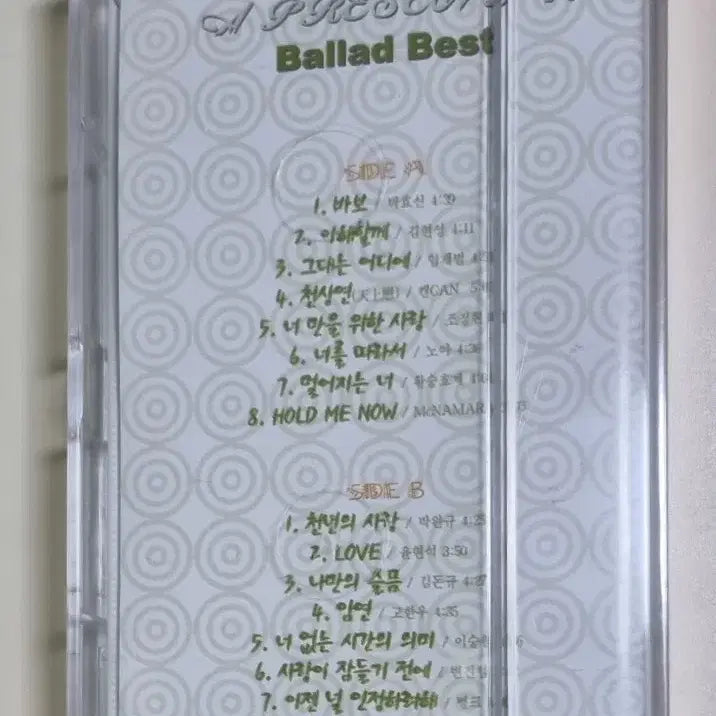 A PRESENT
Ballad Best
SIDE A
1. 바보 / 박효신 4:39
2. 이해할께 / 김현성 4:11
3. 그대는 어디에 / 임재범
4. 천상연(天上戀) / 캔CAN
5. 너 만을 위한 사랑 /
6. 너를 따라서 / 노아 4:36
7. 멀어지는 너 /
8. HOLD ME NOW / McNAMARA
SIDE B
1. 천년의 사랑 / 박완규 4:25
2. LOVE / 윤현석 3:50
3. 나만의 슬픔 / 김돈규 4:27
4. 암연 / 고한우 4:35
5. 너 없는 시간의 의미 /
6. 사랑이 잠들기 전에 /
7. 이젠 널 인정하려해 /